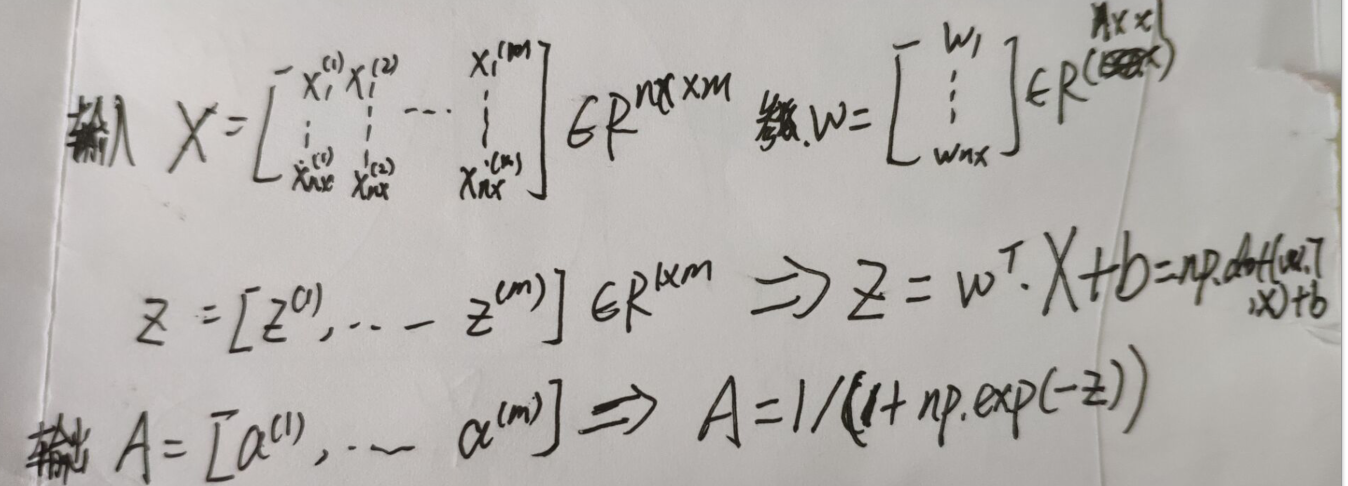 输入 X = [x₁⁽¹⁾ x₁⁽²⁾ ... x₁⁽ᵐ⁾ ; ⋮ ⋮ ⋮ ; xnx⁽¹⁾ xnx⁽²⁾ xnx⁽ᵐ⁾] ∈ R^(nx×m) 参数. w = [w₁ ; ⋮ ; wnx] ∈ R
z = [z⁽¹⁾, ... z⁽ᵐ⁾] ∈ R^(1×m) ⇒ Z = wᵀ·X+b = np.dot(w.T,x)+b
输出 A = [a⁽¹⁾, ... a⁽ᵐ⁾] ⇒ A = 1/(1+np.exp(-z))